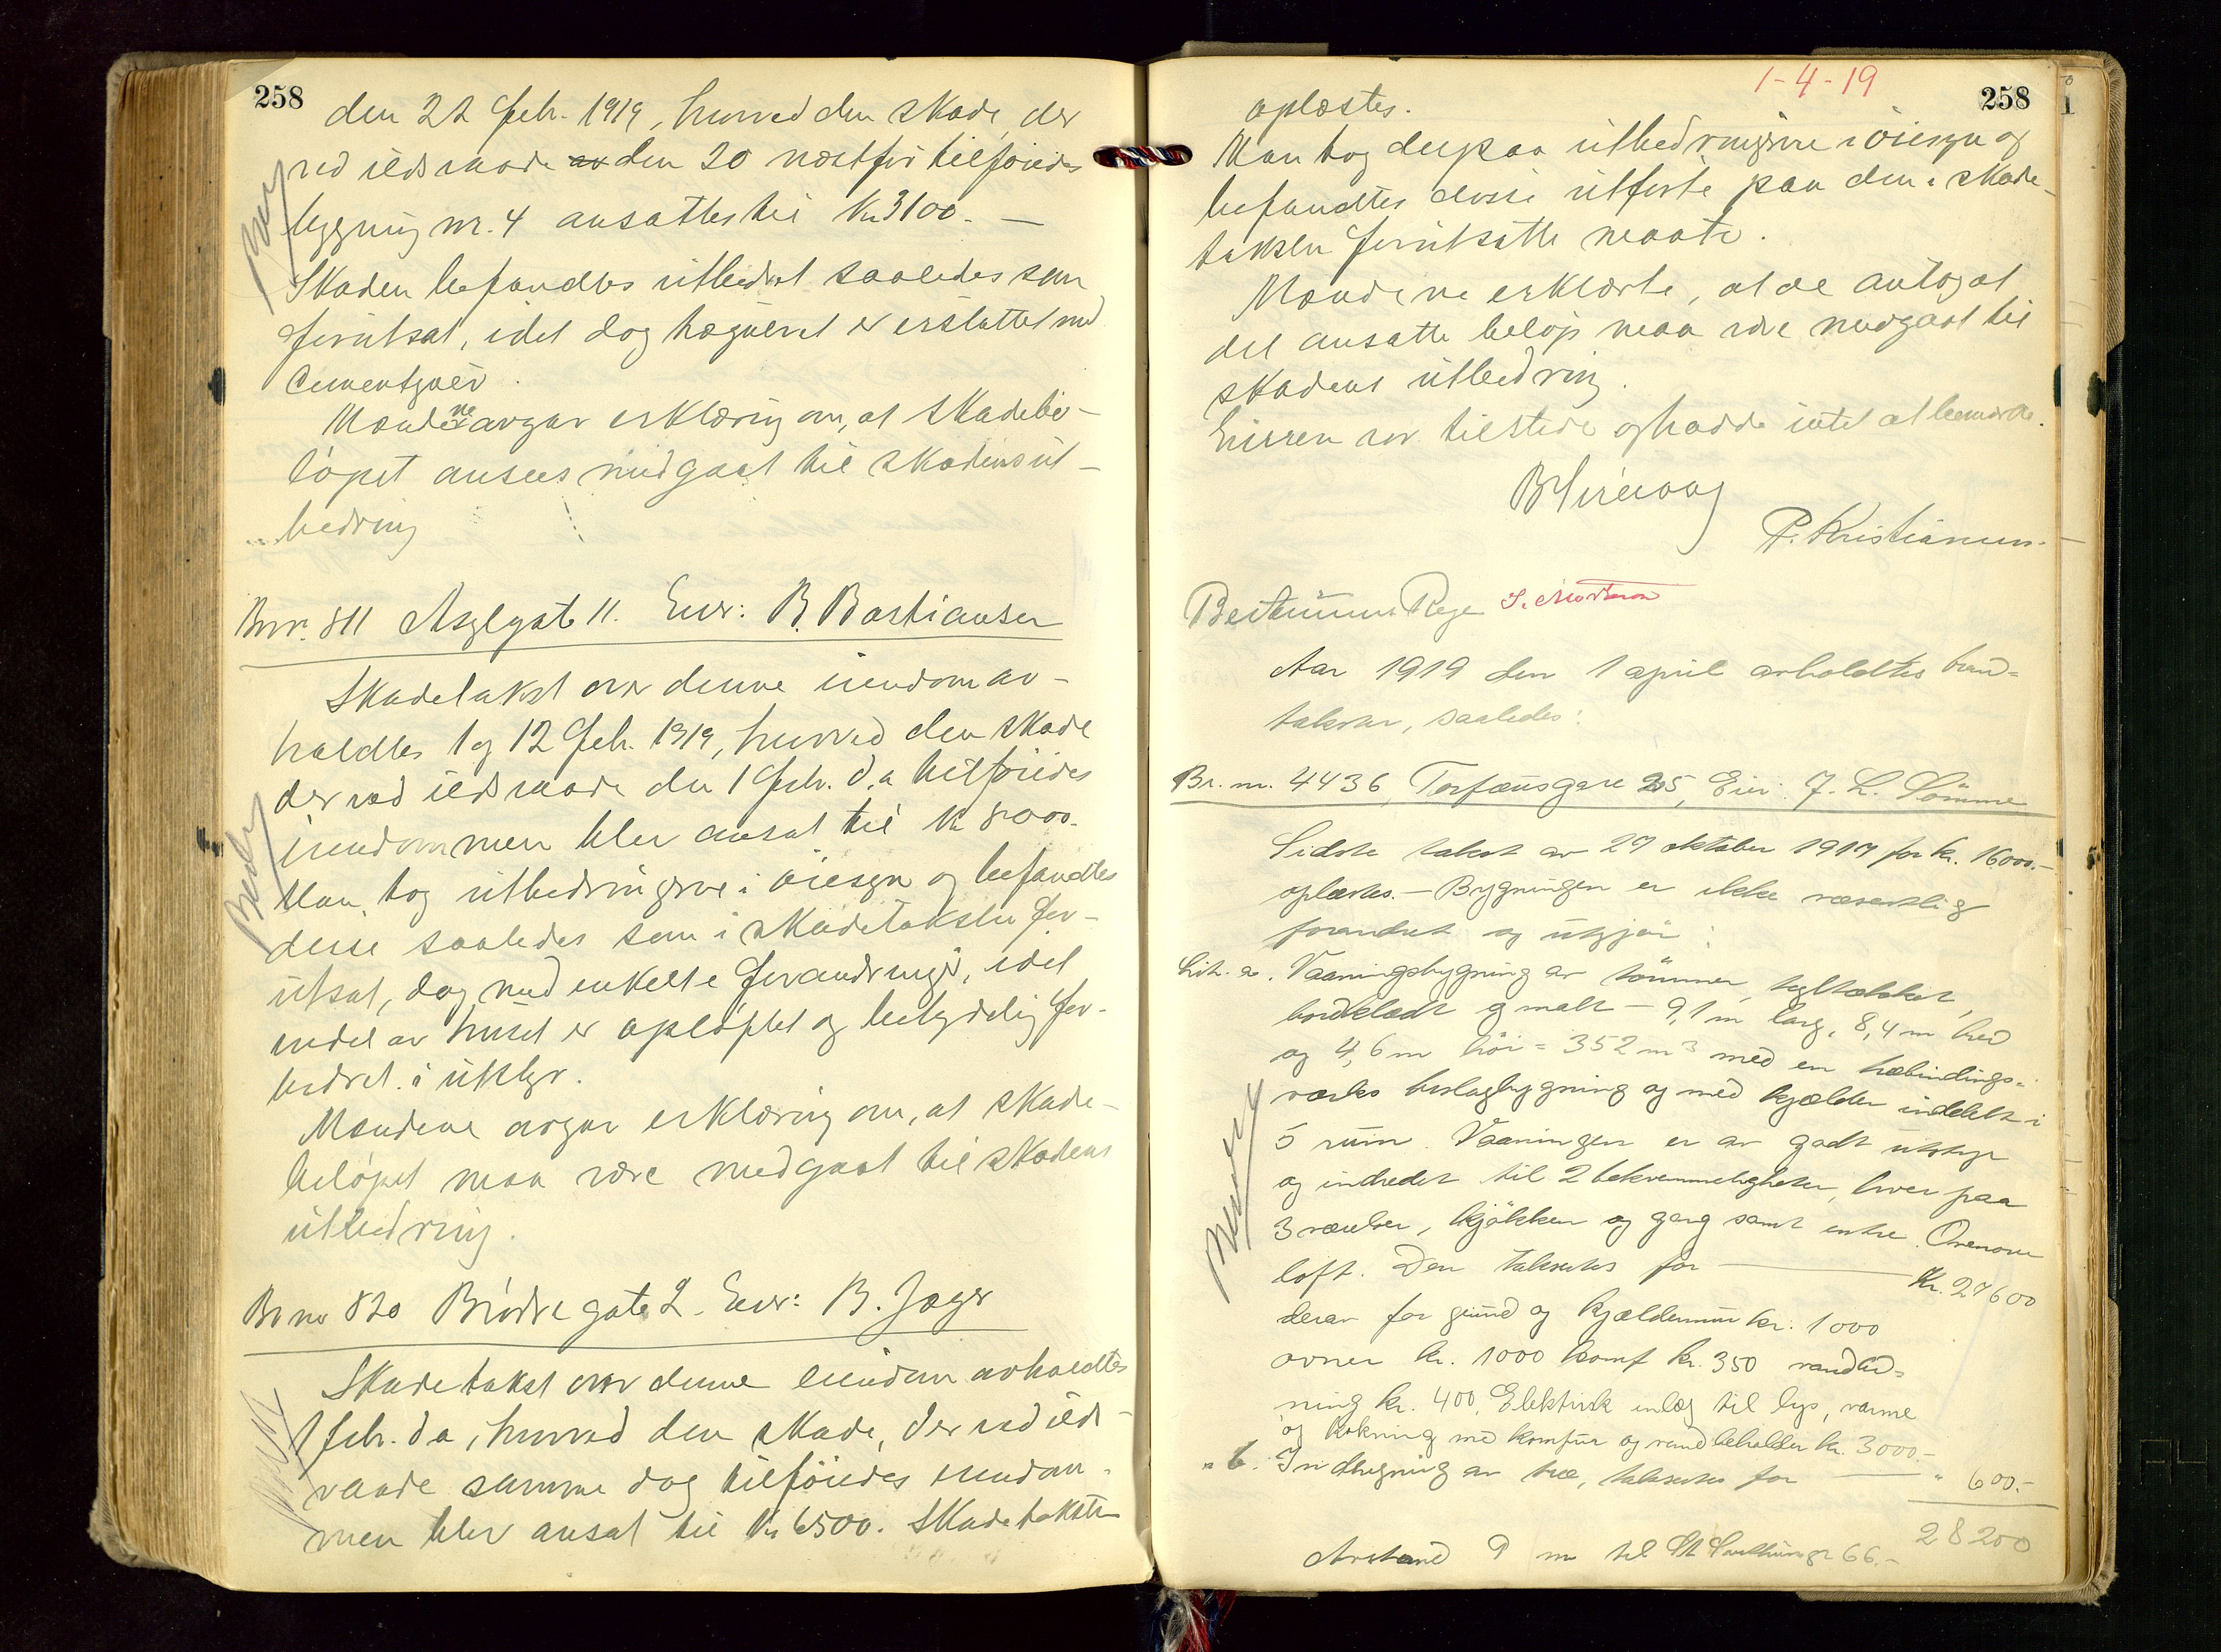 258
den 22 febr. 1919, hvorved den skade, der
ved ildsvaade den 20 næstfør tilføiedes
bygning nr. 4 ansattes til Kr 3100.-
Skaden befandtes utbedret saaledes som
forutsat, idet dog trægulvet er erstattet med
cementgulv.
Mændene avgav erklæring om, at skadebe-
løpet ansees medgaat til skadens ut-
bedring
Brnr. 811 Asylgate 11. Eier: B. Bastiansen
Skadetakst over denne eiendom av-
holdtes 1 og 12 febr. 1919, hvorved den skade
der ved ildsvaade den 1 febr. d.a tilføiedes
eiendommen blev ansat til kr 8000.-
Man tog utbedringerne i øiesyn og befandtes
disse saaledes som i skadetaksten for-
utsat, dog med enkelte forandringer, idet
endel av huset er opløftet og betydelig for-
bedret i utstyr.
Mændene avgav erklæring om, at skade-
beløpet maa være medgaat til skadens
utbedring.
Br nr 820 Brødregate 2. Eier: B. Jæger
Skadetakst over denne eiendom avholdtes
1 febr. d a, hvorved den skade, der ved ild-
svaade samme dag tilføiedes eiendom-
men blev ansat til Kr 6500. Skadetaksten
1-4-19
258
oplæstes.
Man tog derpaa utbedringerne i øiesyn og
befandtes disse utførte paa den i skade-
taksten forutsatte maate.
Mændene erklærte, at de antog at
det ansatte beløp maa være medgaat til
skadens utbedring.
Eieren var tilstede og hadde intet at bemerke.
P. Kristiansen.
Aar 1919 den 1 april avholdtes brand-
takster, saaledes:
Br. nr. 4436, Torfæusgate 25, Eier: J. L. Sømme
Sidste takst av 29 oktober 1917 for kr. 16000.-
oplæstes. - Bygningen er ikke væsentlig
forandret og utgjør:
Lit. a. Vaaningsbygning av tømmer, tegltækket,
bordklædt og malt - 9,1 m lang, 8,4 m bred
og 4,6 m høi = 352 m3 med en træbindings-
verks beslagbygning og med kjælder inddelt i
5 rum. Vaaningen er av godt utstyr
og indredet til 2 bekvemmeligheter, hver paa
3 værelser, kjøkken og gang samt entre. Ovenover
loft. Den taksertes for Kr. 27600
derav for grund og kjældermur kr. 1000
ovner kr. 1000 komf kr. 350 vandled-
ning kr. 400, Elektrisk inlæg til lys, varme
og kokning med komfur og vandbeholder kr. 3000.-
" b. Indhegning av træ, taksertes for " 600.-
28200
Avstand 9 m til 66.-